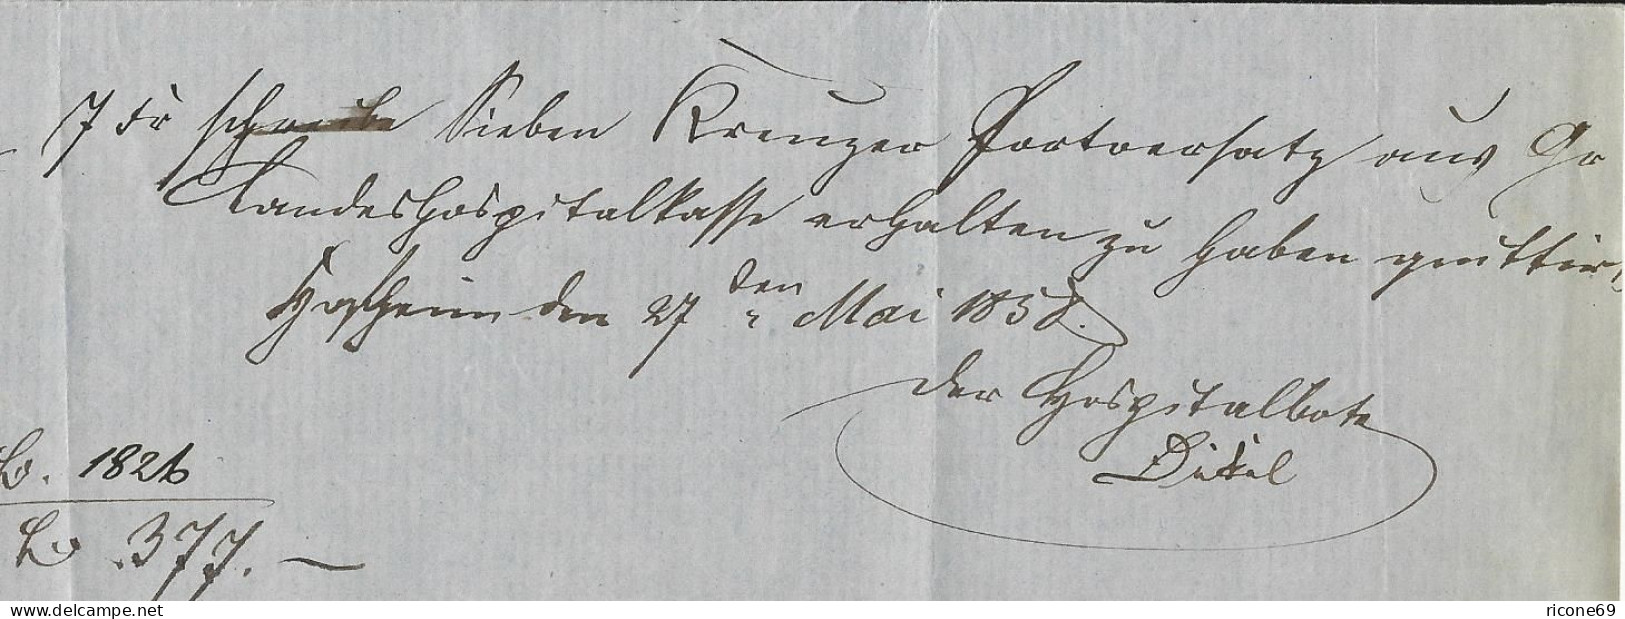 7 Xr schreibe Sieben Kreuzer Portoersatz aus Gr
Landeshospitalkasse erhalten zu haben quittirt
Hofheim den 27 ten Mai 1858.
Der Hospitalbote
Dikel
1826
377.
www.delcampe.net ricone69